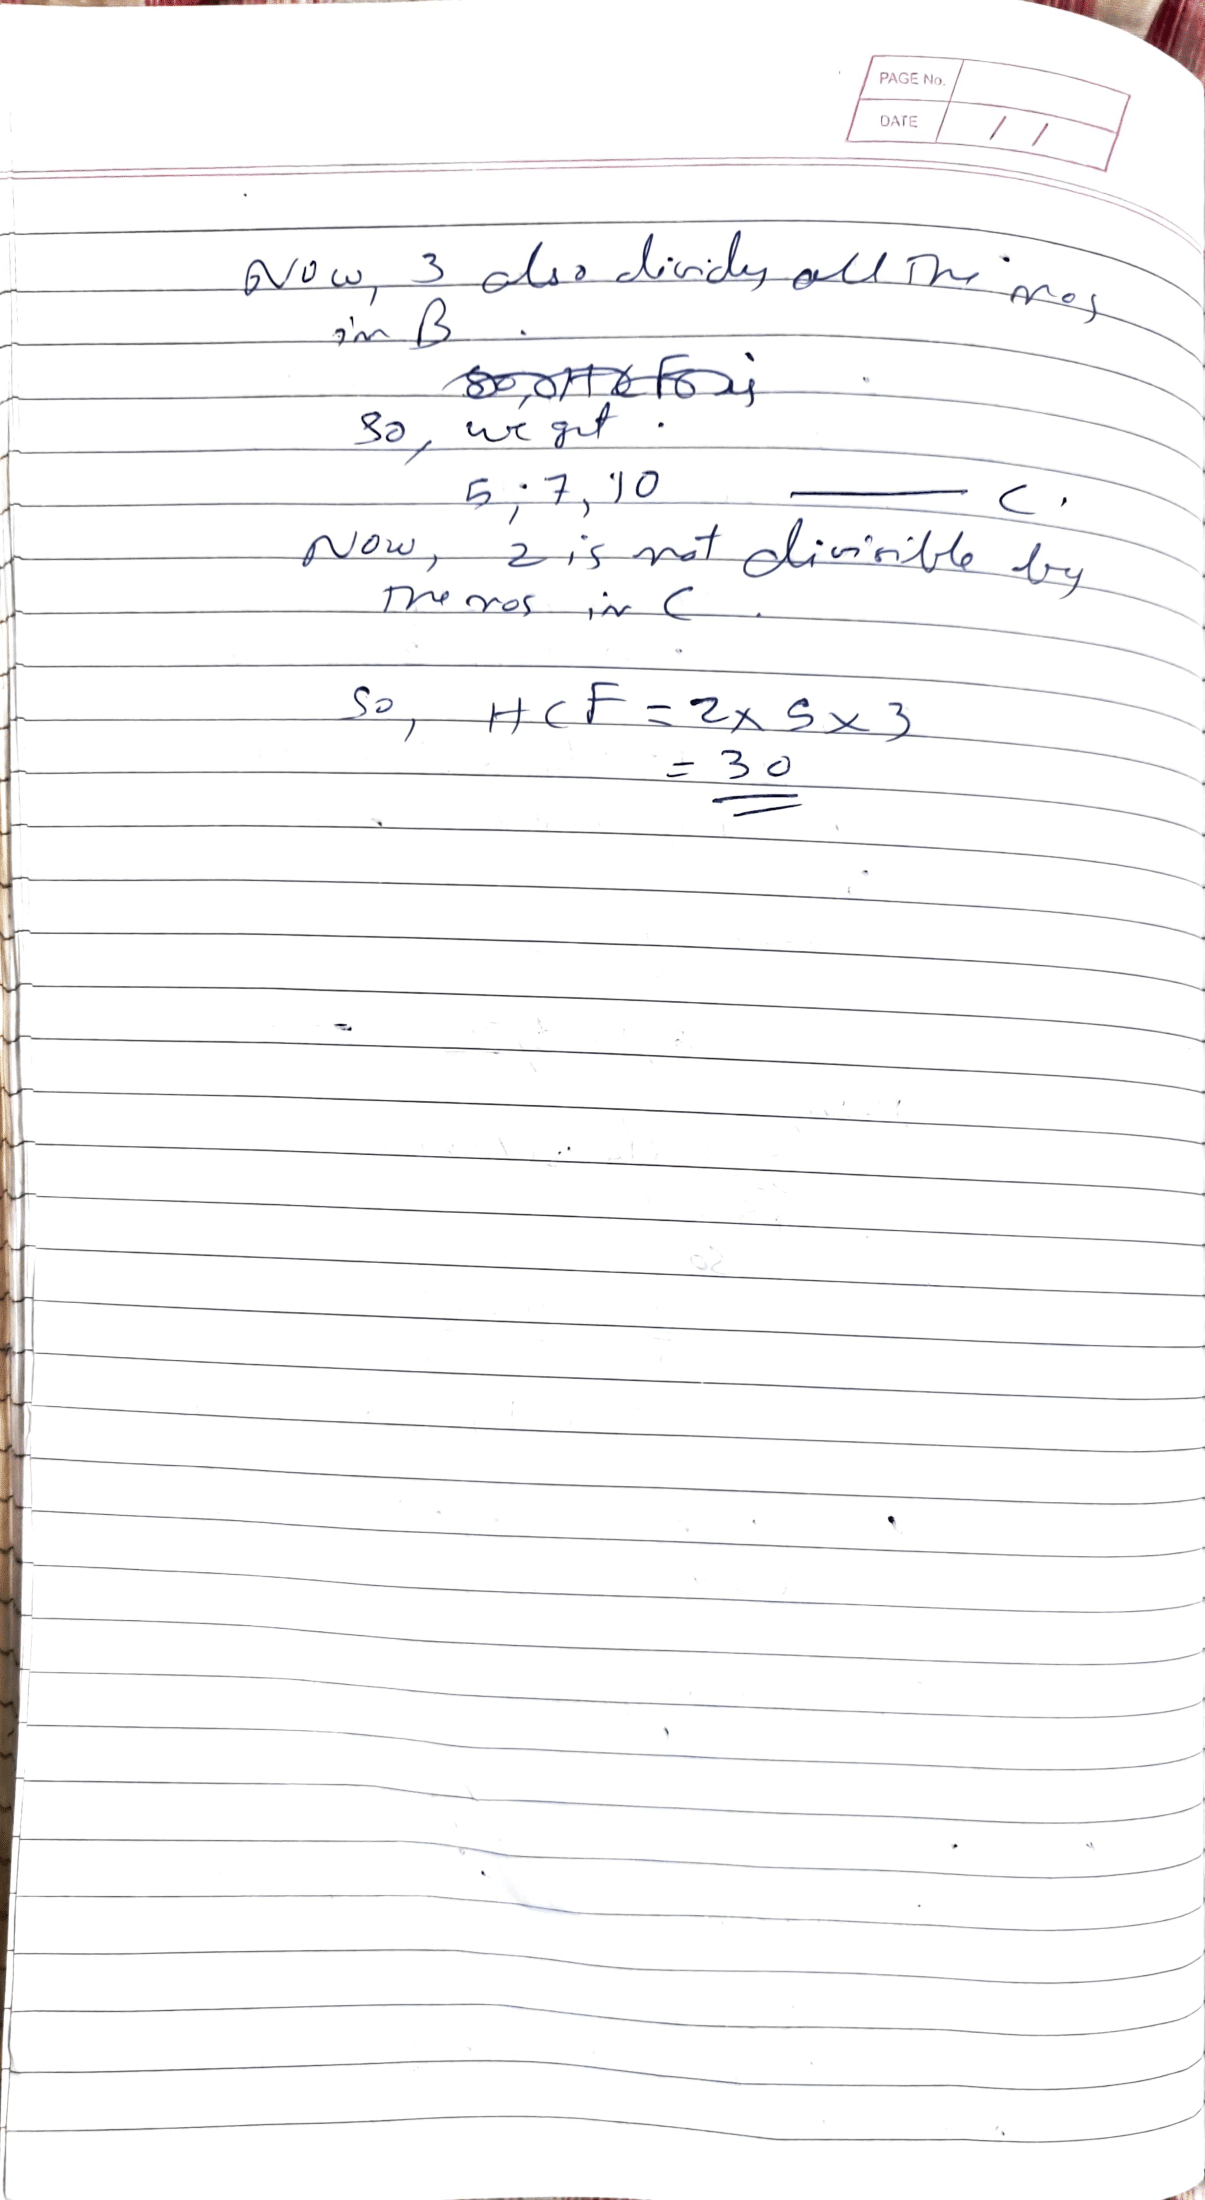 PAGE No.
DATE / /
Now, 3 also divides all the nos
in B.
So, we get.
5, 7, 10 —— C.
Now, 2 is not divisible by
the nos in C.
So, HCF = 2 x 5 x 3
= 30